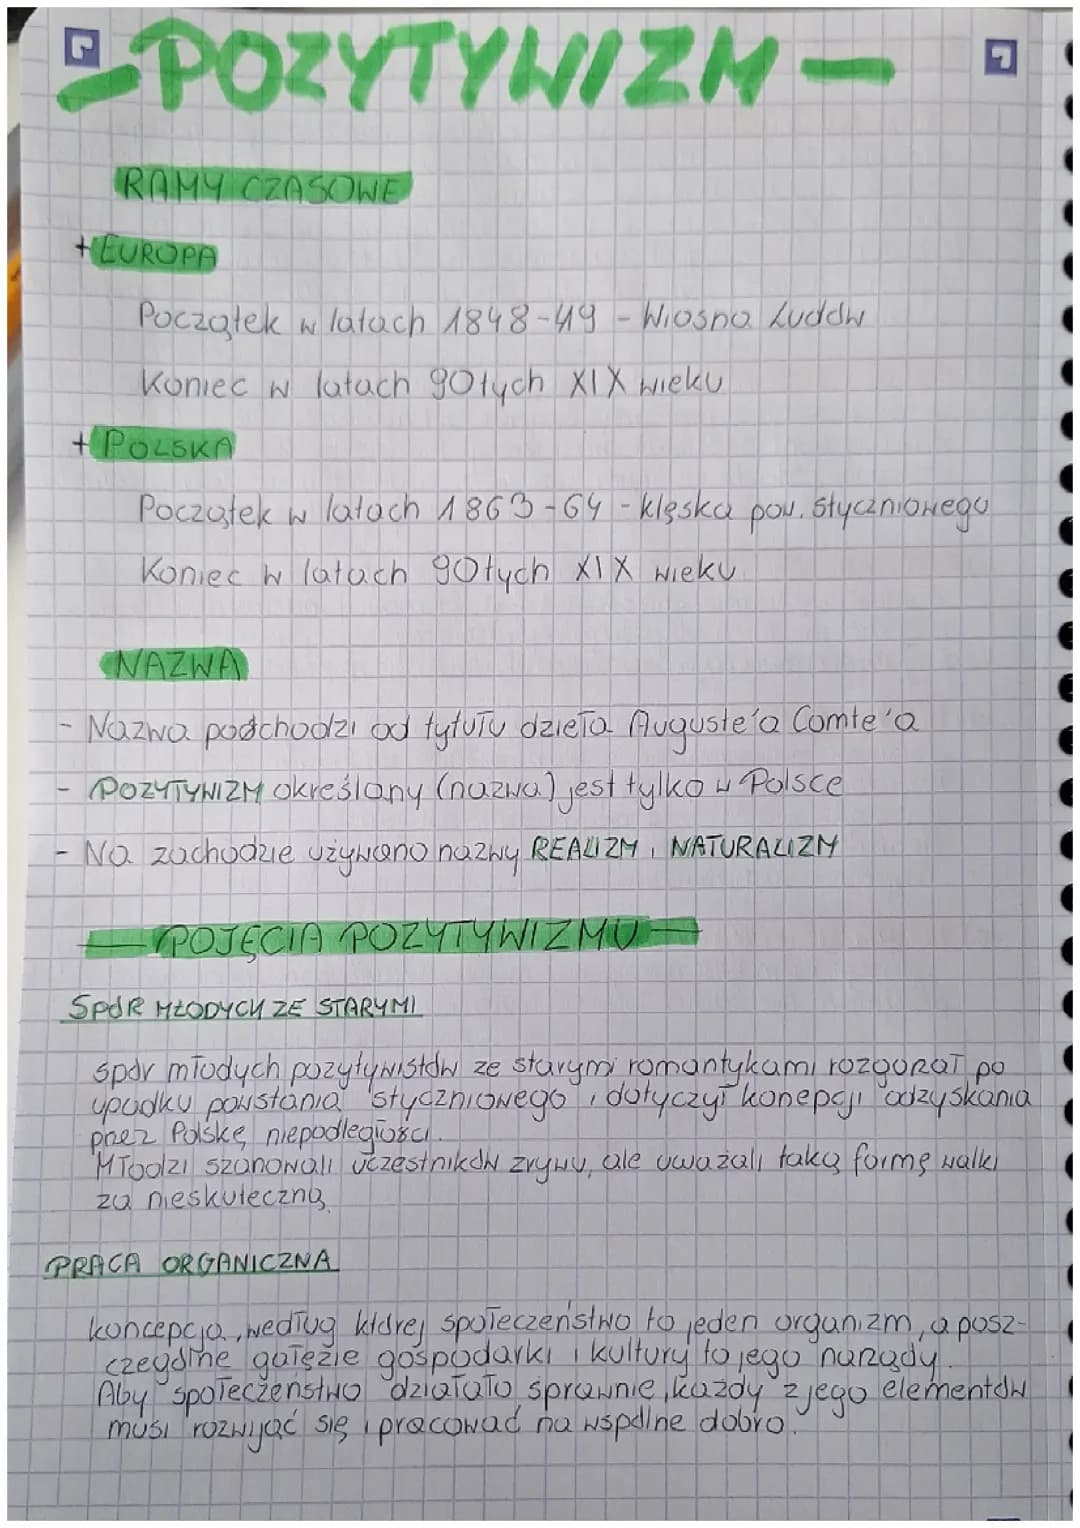 - POZYTYWIZM -
RAMY CZASOWE
+ EUROPA
Początek w latach 1848-49 - Wiosna Ludów
Koniec w latach 90tych XIX wieku
+ POLSKA
Początek w latach 1863-64 - klęska pow. styczniowego
Koniec w latach 90tych XIX wieku
NAZWA
- Nazwa podchodzi od tytułu dzieła Auguste'a Comte'a
- POZYTYWIZM określany (nazwa) jest tylko w Polsce
- Na zachodzie używano nazwy REALIZM i NATURALIZM
— POJĘCIA POZYTYWIZMU —
SPÓR MŁODYCH ZE STARYMI
spór młodych pozytywistów ze starymi romantykami rozgorzał po
upadku powstania styczniowego i dotyczył konepcji odzyskania
przez Polskę niepodległości.
Młodzi szanowali uczestników zrywu, ale uważali taką formę walki
za nieskuteczną.
PRACA ORGANICZNA
koncepcja, według której społeczeństwo to jeden organizm, a posz-
czególne gałęzie gospodarki i kultury to jego narządy.
Aby społeczeństwo działało sprawnie, każdy z jego elementów
musi rozwijać się i pracować na wspólne dobro.